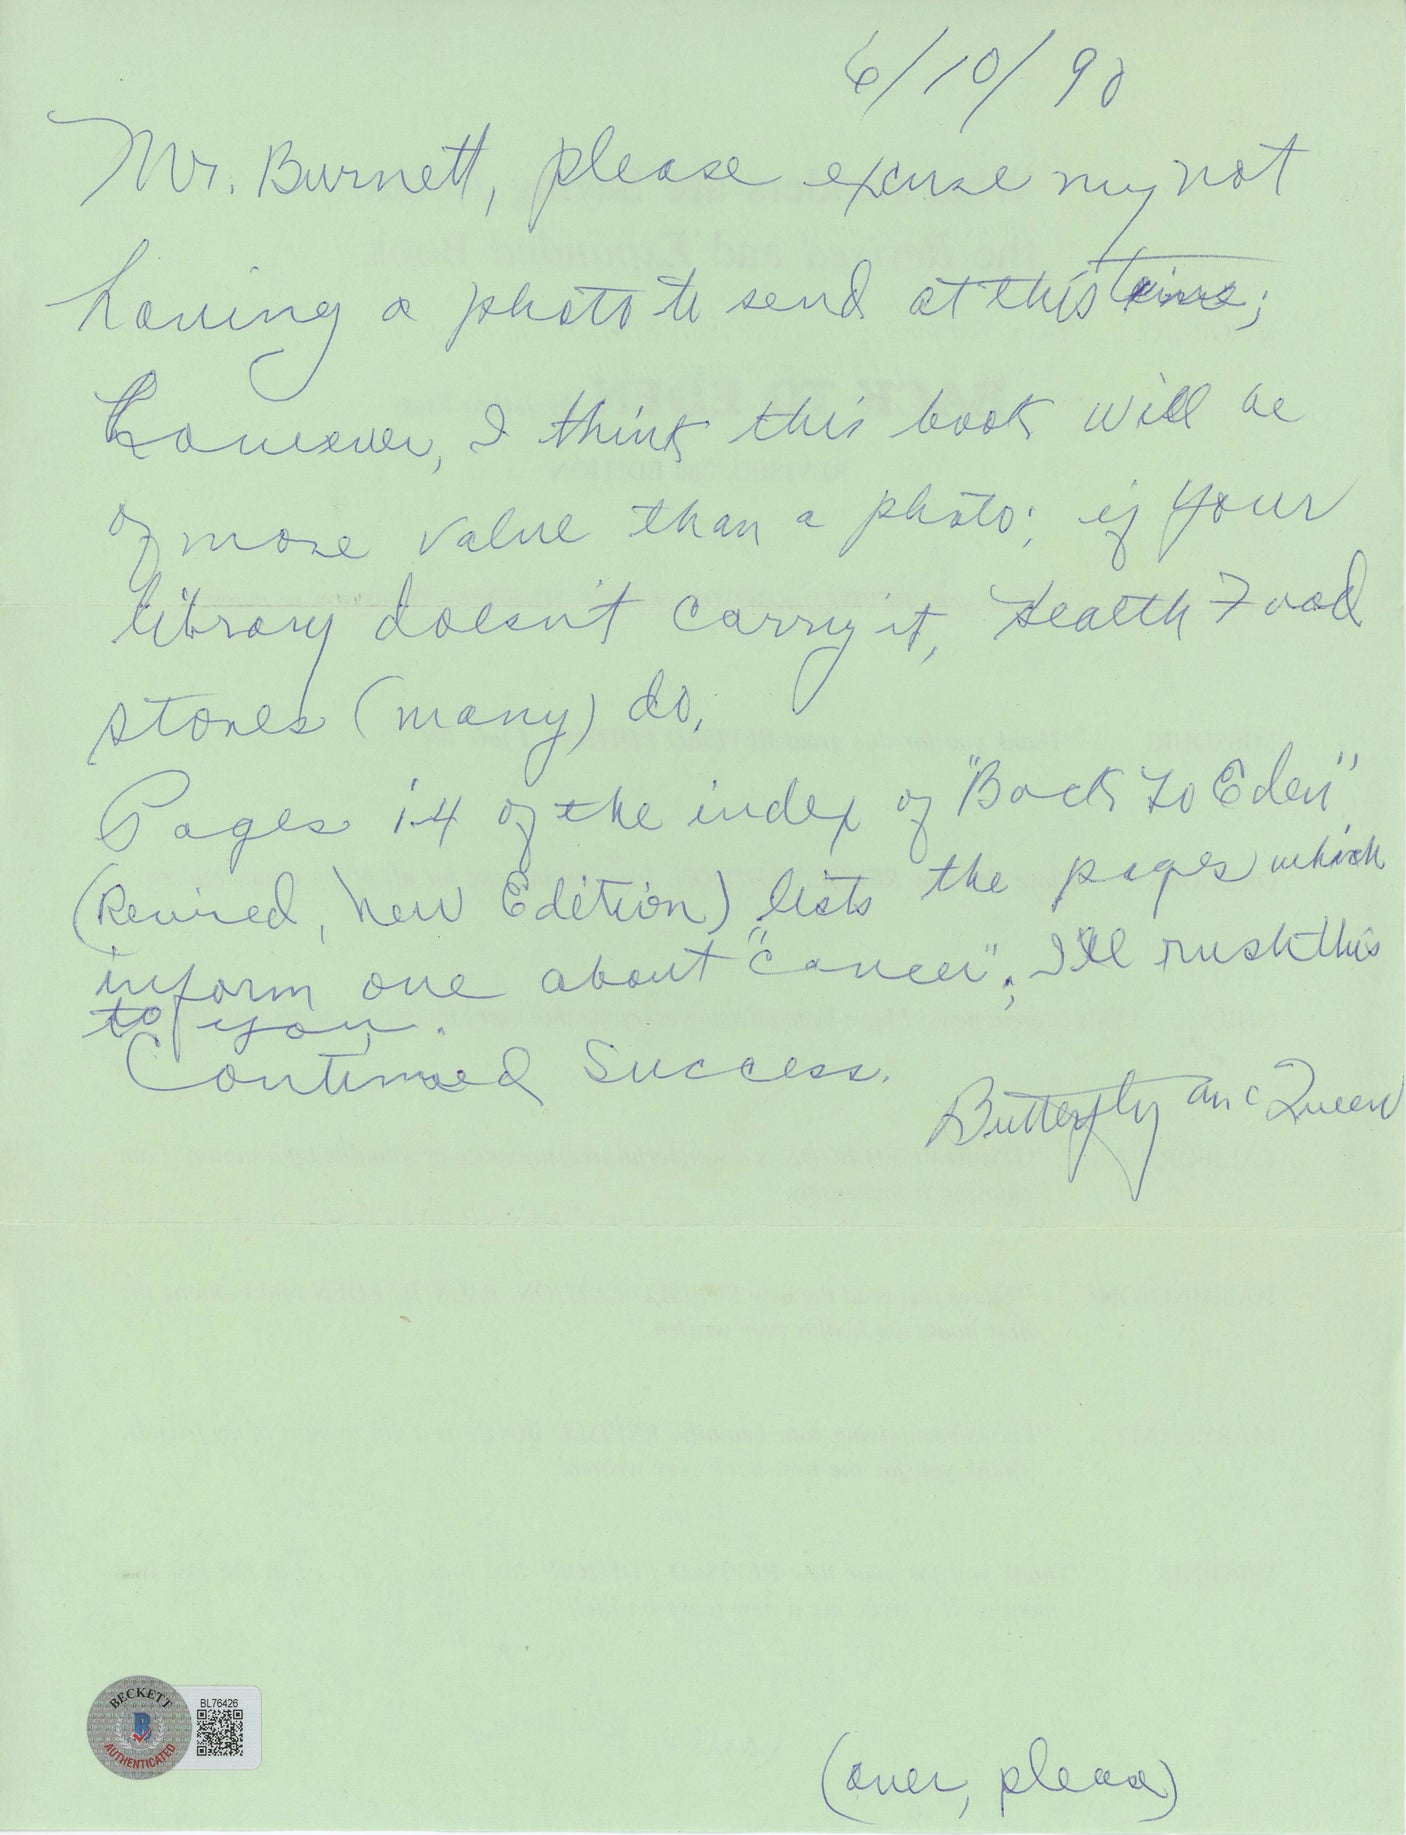 6/10/90
Mr. Burnett, please excuse my not
having a photo to send at this time;
however, I think this book will be
of more value than a photo; if your
library doesn't carry it, Health Food
stores (many) do.
Pages 1-4 of the index of "Back to Eden"
(Revised, New Edition) lists the pages which
inform one about "cancer"; I'll rush this
to you.
Continued Success.
Butterfly McQueen
BECKETT
B
AUTHENTICATED
BL76426
(over, please)